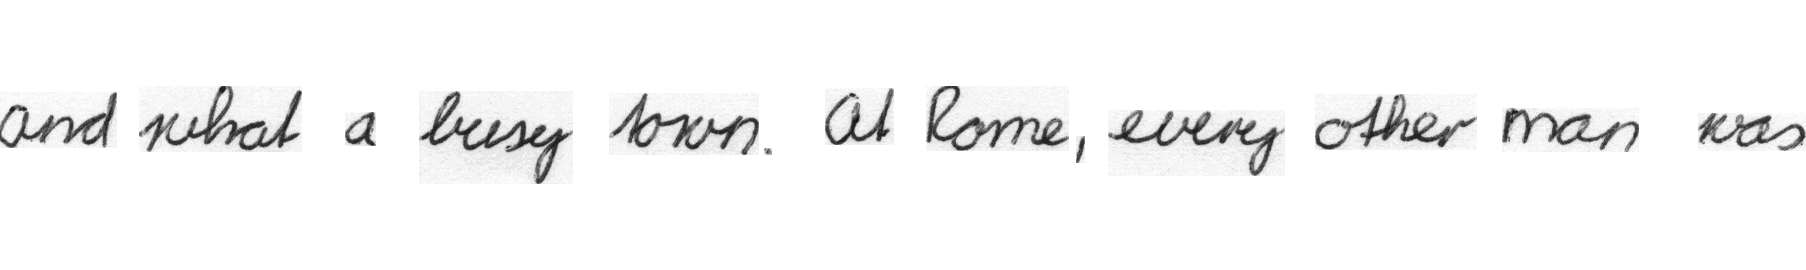 and what a busy town. At Rome, every other man was